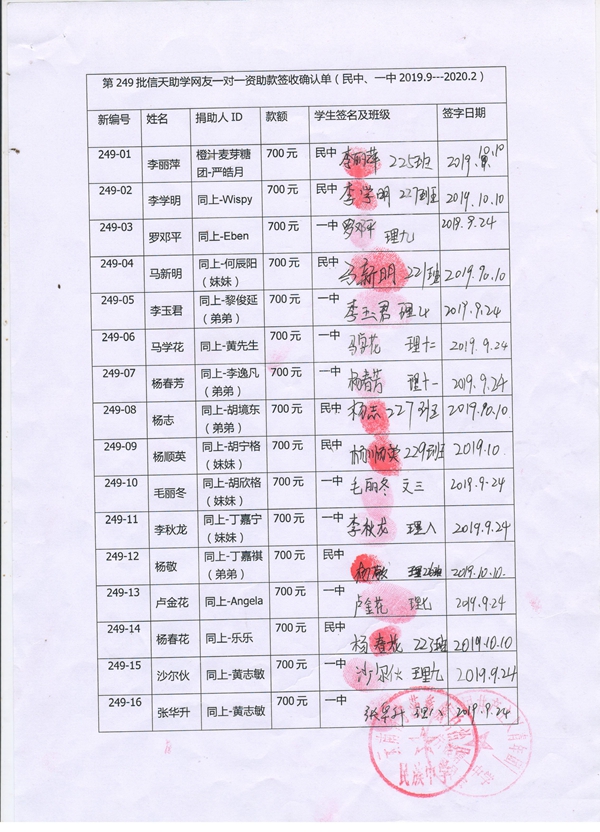 第 249 批信天助学网友一对一资助款签收确认单（民中、一中 2019.9---2020.2）
新编号 姓名 捐助人 ID 款额 学生签名及班级 签字日期
249-01 李丽萍 橙汁麦芽糖团-严皓月 700 元 民中 李丽萍 225班 2019.10.10
249-02 李学明 同上-Wispy 700 元 民中 李学明 227班 2019.10.10
249-03 罗邓平 同上-Eben 700 元 一中 罗邓平 理九 2019.9.24
249-04 马新明 同上-何辰阳（妹妹） 700 元 民中 马新明 221班 2019.10.10
249-05 李玉君 同上-黎俊延（弟弟） 700 元 一中 李玉君 理 2019.9.24
249-06 马学花 同上-黄先生 700 元 一中 马学花 理十二 2019.9.24
249-07 杨春芳 同上-李逸凡（弟弟） 700 元 一中 杨春芳 理十一 2019.9.24
249-08 杨志 同上-胡境东（弟弟） 700 元 民中 杨志 227班 2019.10.10
249-09 杨顺英 同上-胡宁格（妹妹） 700 元 民中 杨顺英 229班 2019.10.
249-10 毛丽冬 同上-胡欣格（妹妹） 700 元 一中 毛丽冬 文三 2019.9.24
249-11 李秋龙 同上-丁嘉宁（妹妹） 700 元 一中 李秋龙 理八 2019.9.24
249-12 杨敬 同上-丁嘉祺（弟弟） 700 元 民中 杨敬 2019.10.10.
249-13 卢金花 同上-Angela 700 元 一中 卢金花 理七 2019.9.24
249-14 杨春花 同上-乐乐 700 元 民中 杨春花 223班 2019.10.10
249-15 沙尔伙 同上-黄志敏 700 元 一中 沙尔伙 理九 2019.9.24
249-16 张华升 同上-黄志敏 700 元 一中 张华升 理八 2019.9.24
民族中学